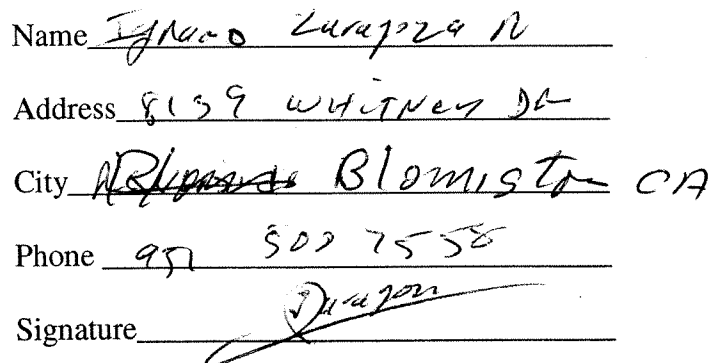 Name Ignacio Zaragoza R
Address 8139 WHITNEY DR
City Blomington CA
Phone 951 7558
Signature